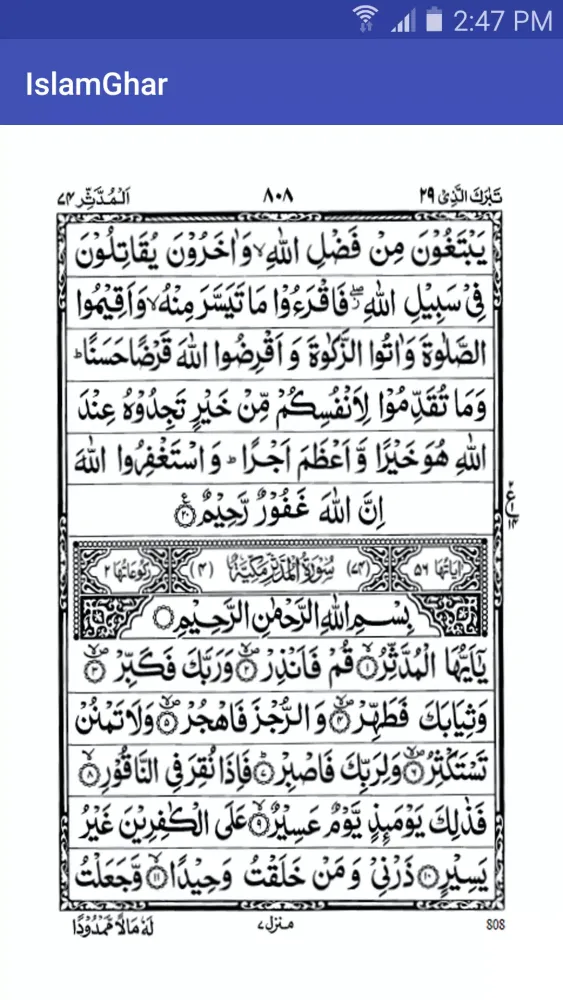 2:47 PM
IslamGhar
تَبٰرَكَ الَّذِیْ ۲۹
۸۰۸
اَلْمُدَّثِّر ۷۴
یَبْتَغُوْنَ مِنْ فَضْلِ اللّٰهِ ۙ وَاٰخَرُوْنَ یُقَاتِلُوْنَ
فِیْ سَبِیْلِ اللّٰهِ ۖ فَاقْرَءُوْا مَا تَیَسَّرَ مِنْهُ ۙ وَاَقِیْمُوا
الصَّلٰوةَ وَاٰتُوا الزَّكٰوةَ وَاَقْرِضُوا اللّٰهَ قَرْضًا حَسَنًا ؕ
وَمَا تُقَدِّمُوْا لِاَنْفُسِكُمْ مِّنْ خَیْرٍ تَجِدُوْهُ عِنْدَ
اللّٰهِ هُوَ خَیْرًا وَّاَعْظَمَ اَجْرًا ؕ وَاسْتَغْفِرُوا اللّٰهَ
اِنَّ اللّٰهَ غَفُوْرٌ رَّحِیْمٌ ۲۰
اٰیَاتُهَا ۵۶ (۷۴) سُوْرَةُ الْمُدَّثِّرِ مَكِّیَّةٌ (۴) رُكُوْعَاتُهَا ۲
بِسْمِ اللّٰهِ الرَّحْمٰنِ الرَّحِیْمِ
یٰۤاَیُّهَا الْمُدَّثِّرُ ۱ قُمْ فَاَنْذِرْ ۲ وَرَبَّكَ فَكَبِّرْ ۳
وَثِیَابَكَ فَطَهِّرْ ۴ وَالرُّجْزَ فَاهْجُرْ ۵ وَلَا تَمْنُنْ
تَسْتَكْثِرُ ۶ وَلِرَبِّكَ فَاصْبِرْ ۷ فَاِذَا نُقِرَ فِی النَّاقُوْرِ ۸
فَذٰلِكَ یَوْمَئِذٍ یَّوْمٌ عَسِیْرٌ ۹ عَلَی الْكٰفِرِیْنَ غَیْرُ
یَسِیْرٍ ۱۰ ذَرْنِیْ وَمَنْ خَلَقْتُ وَحِیْدًا ۱۱ وَّجَعَلْتُ
لَهٗ مَالًا مَّمْدُوْدًا
منزل ۷
808